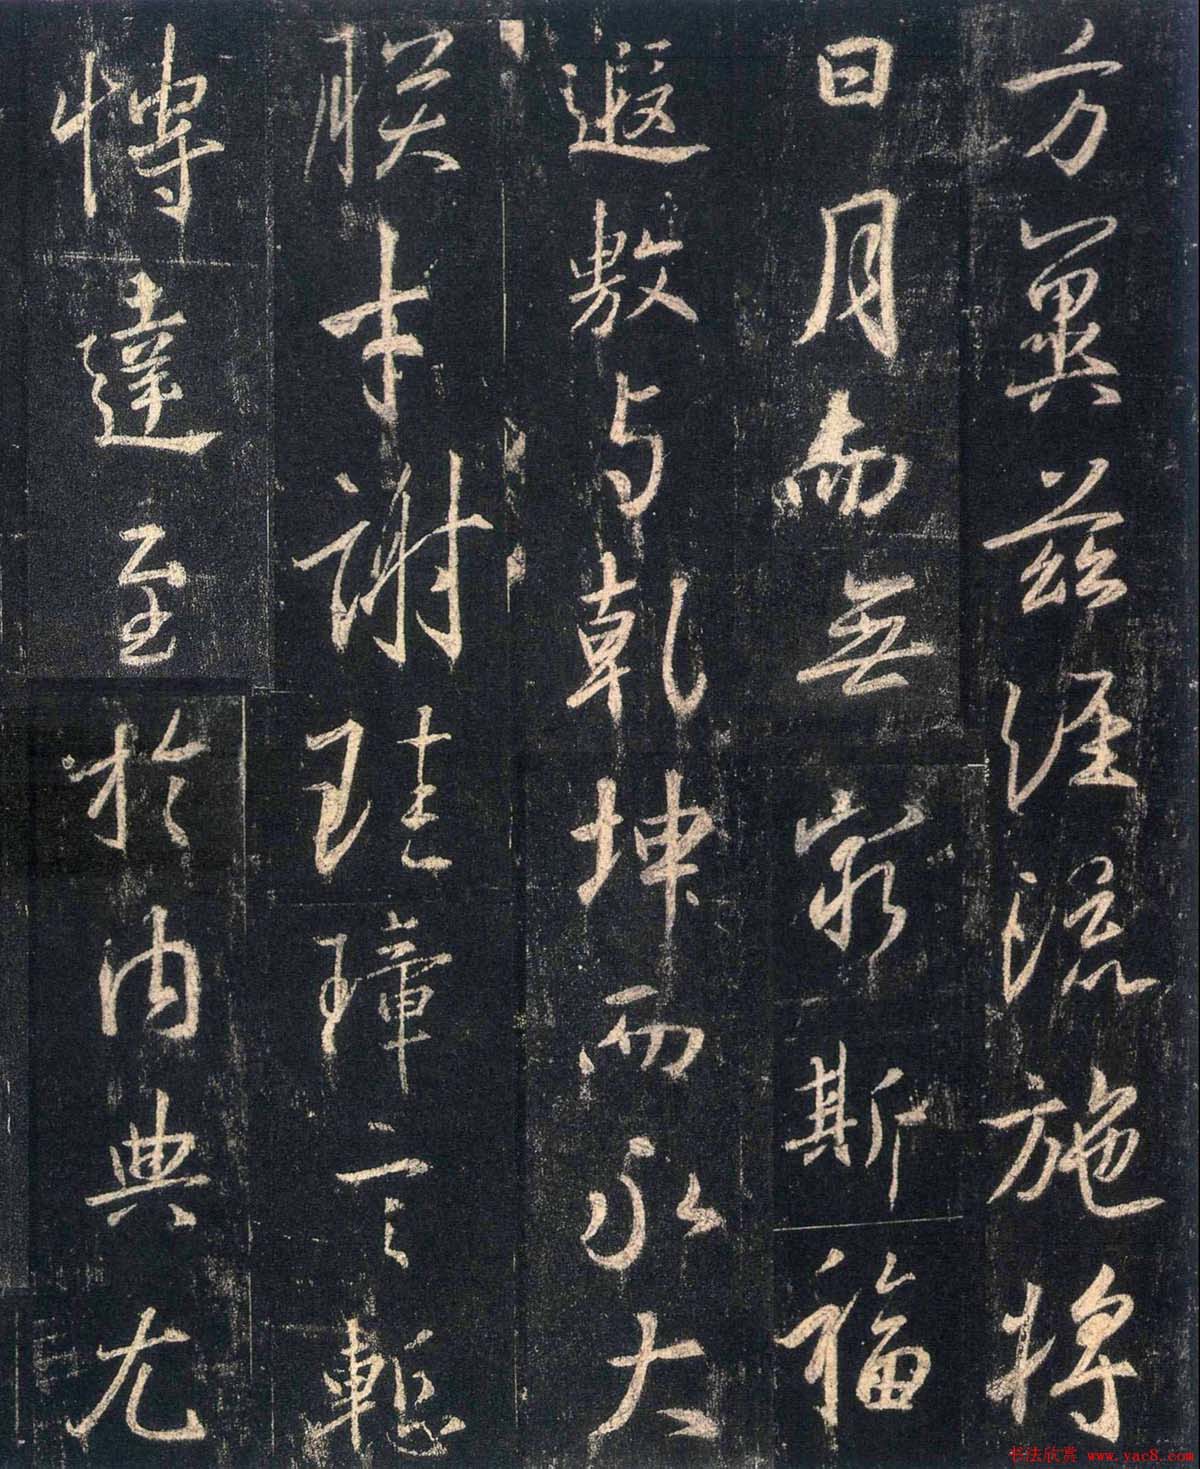 方冀茲經流施將
日月而無窮斯福
遐敷与乾坤而永大
朕才謝珪璋言慙
博達至於内典尤
书法欣赏 www.yac8.com